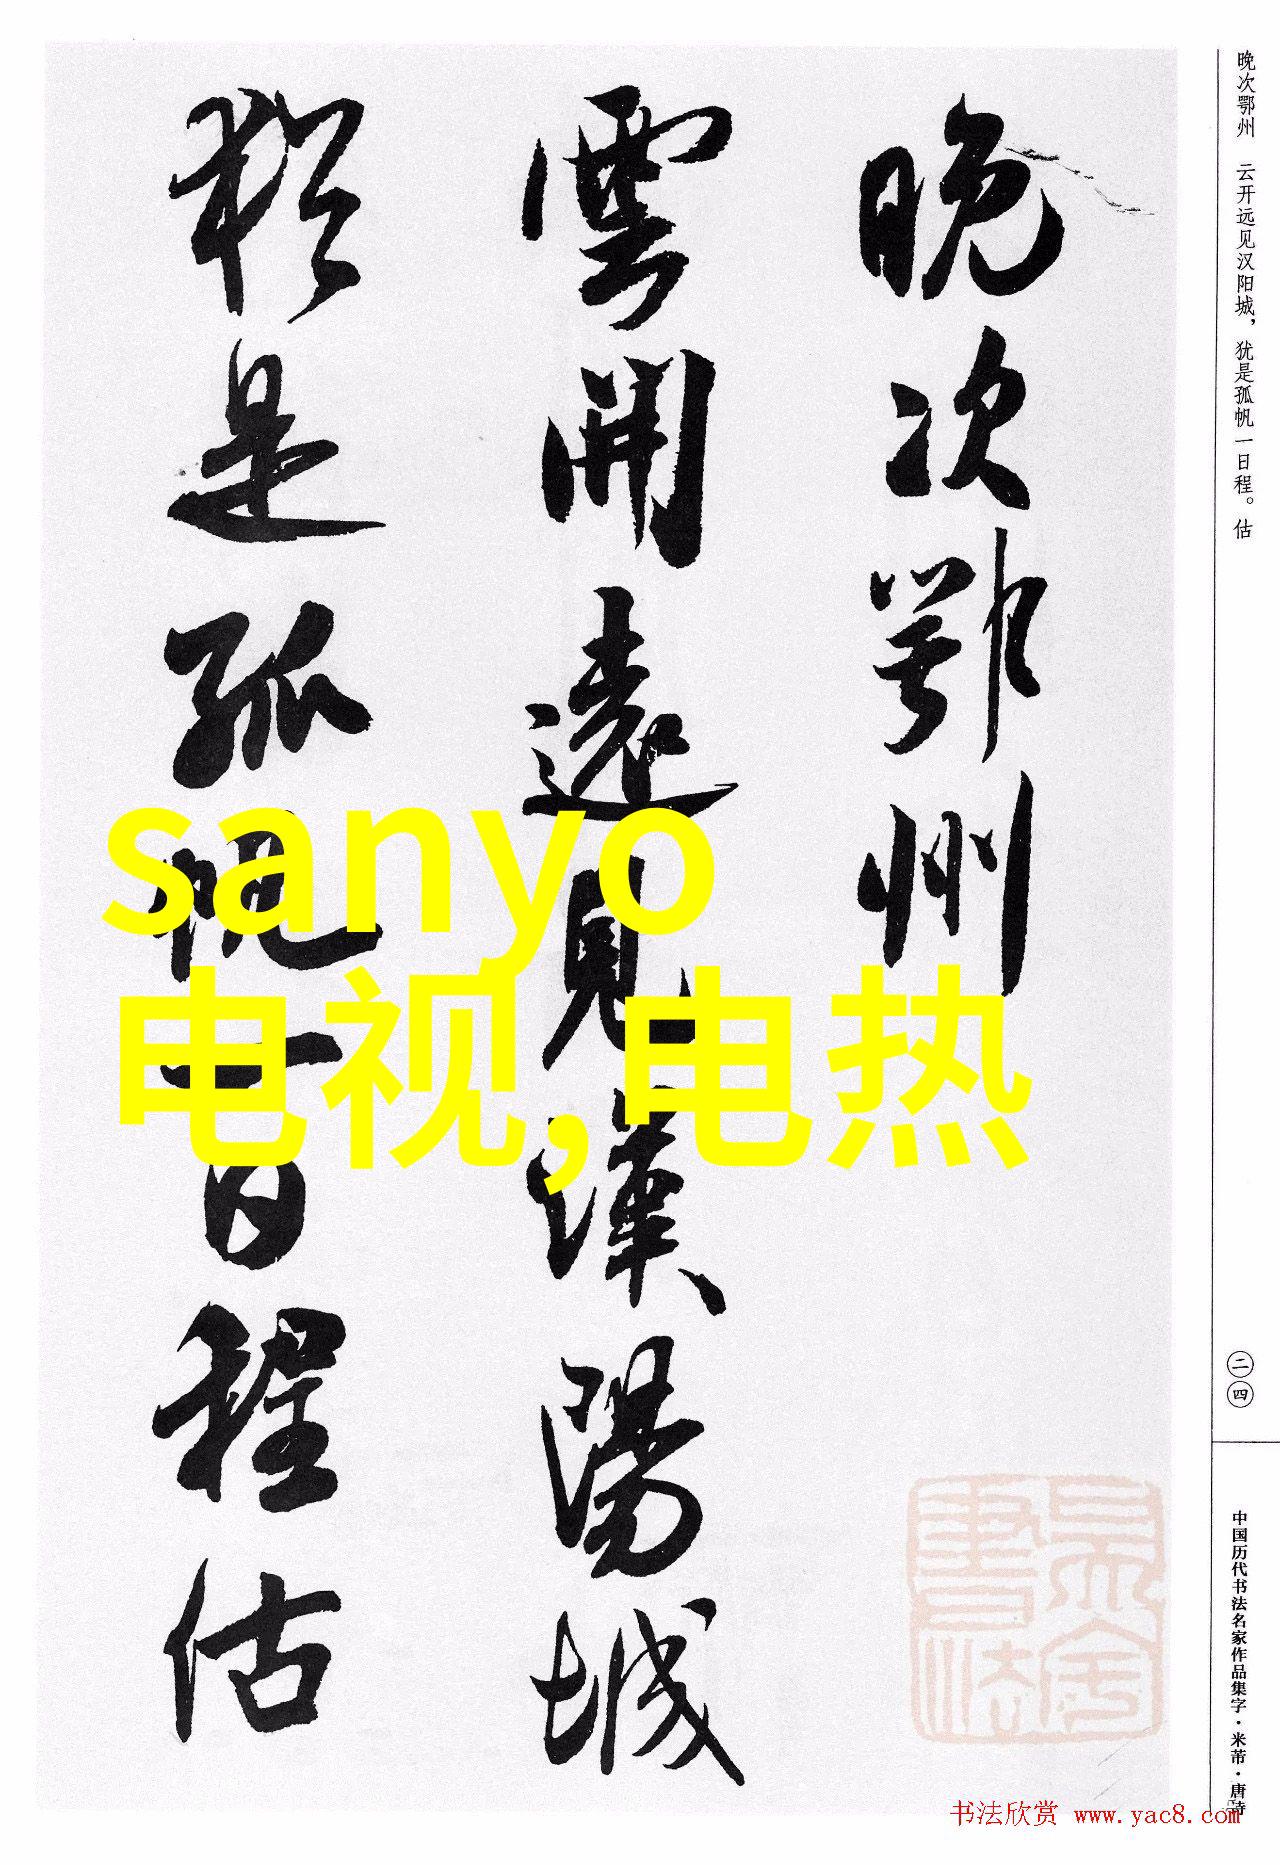 晚次鄂州
雲開遠見漢陽城
猶是孤帆一日程估
晚次鄂州 云开远见汉阳城，犹是孤帆一日程。估
二四
中国历代书法名家作品集字·米芾·唐诗
sanyo
电视,电热
书法欣赏 www.yac8.com